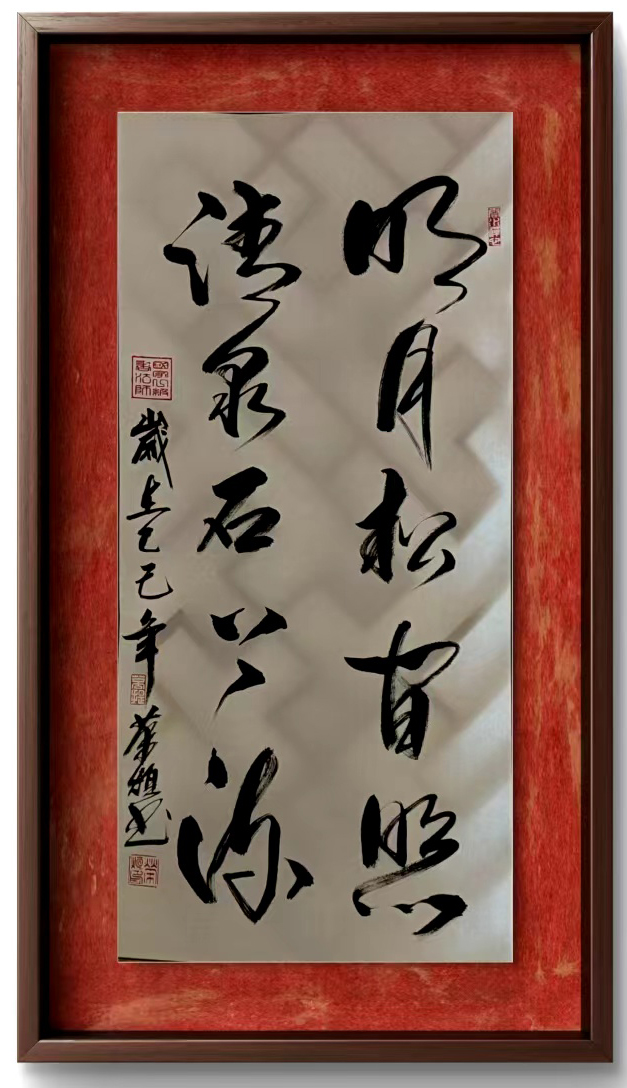 明月松間照
清泉石上流
歲在乙巳年